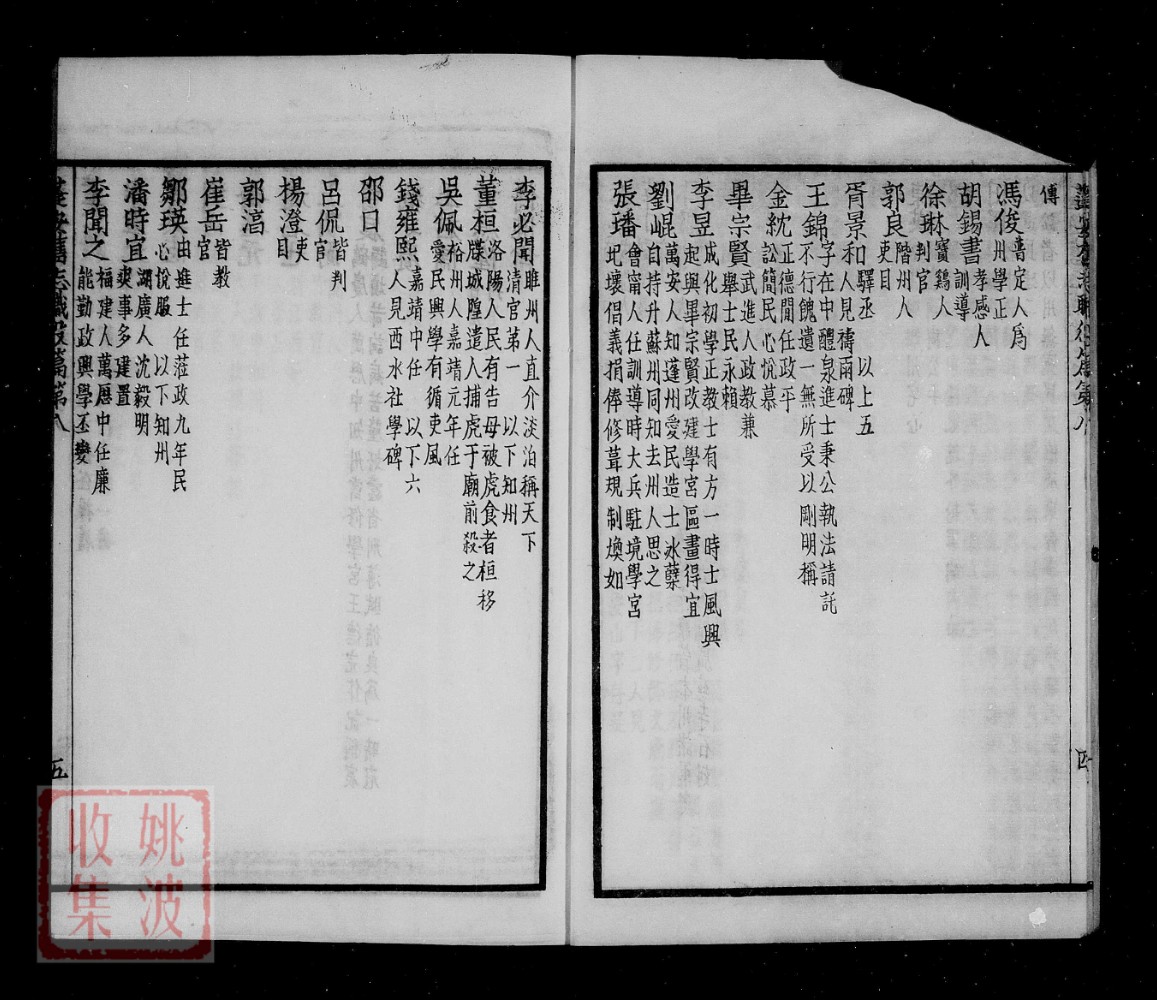 傳
馮俊普定人爲州學正
胡錫書孝感人訓導
徐琳寶鷄人判官
郭良階州人吏目
胥景和驛丞以上五人見禱雨碑
王錦字在中醴泉進士秉公執法請託不行餽遺一無所受以剛明稱
金紞正德間任政平訟簡民心悅慕
畢宗賢武進人政教兼舉士民永賴
李昱成化初學正教士有方一時士風興起與畢宗賢改建學宮區畫得宜
劉崐萬安人知蓬州愛民造士冰蘗自持升蘇州同知去州人思之
張璠會甯人任訓導時大兵駐境學宮圮壞倡義捐俸修葺規制煥如
四
李必聞睢州人直介淡泊稱天下清官第一以下知州
董桓洛陽人民有告母被虎食者桓移牒城隍遣人捕虎于廟前殺之
吳佩裕州人嘉靖元年任愛民興學有循吏風
錢雍熙嘉靖中任以下六人見西水社學碑
邵口
呂侃皆判官
楊澄吏目
郭滈
崔岳皆教官
鄒瑛由進士任蒞政九年民心悅服以下知州
潘時宜湖廣人沈毅明爽事多建置
李聞之福建人萬厯中任廉能勤政興學丕變
蓬安舊志職役篇第八
五
姚波
收集